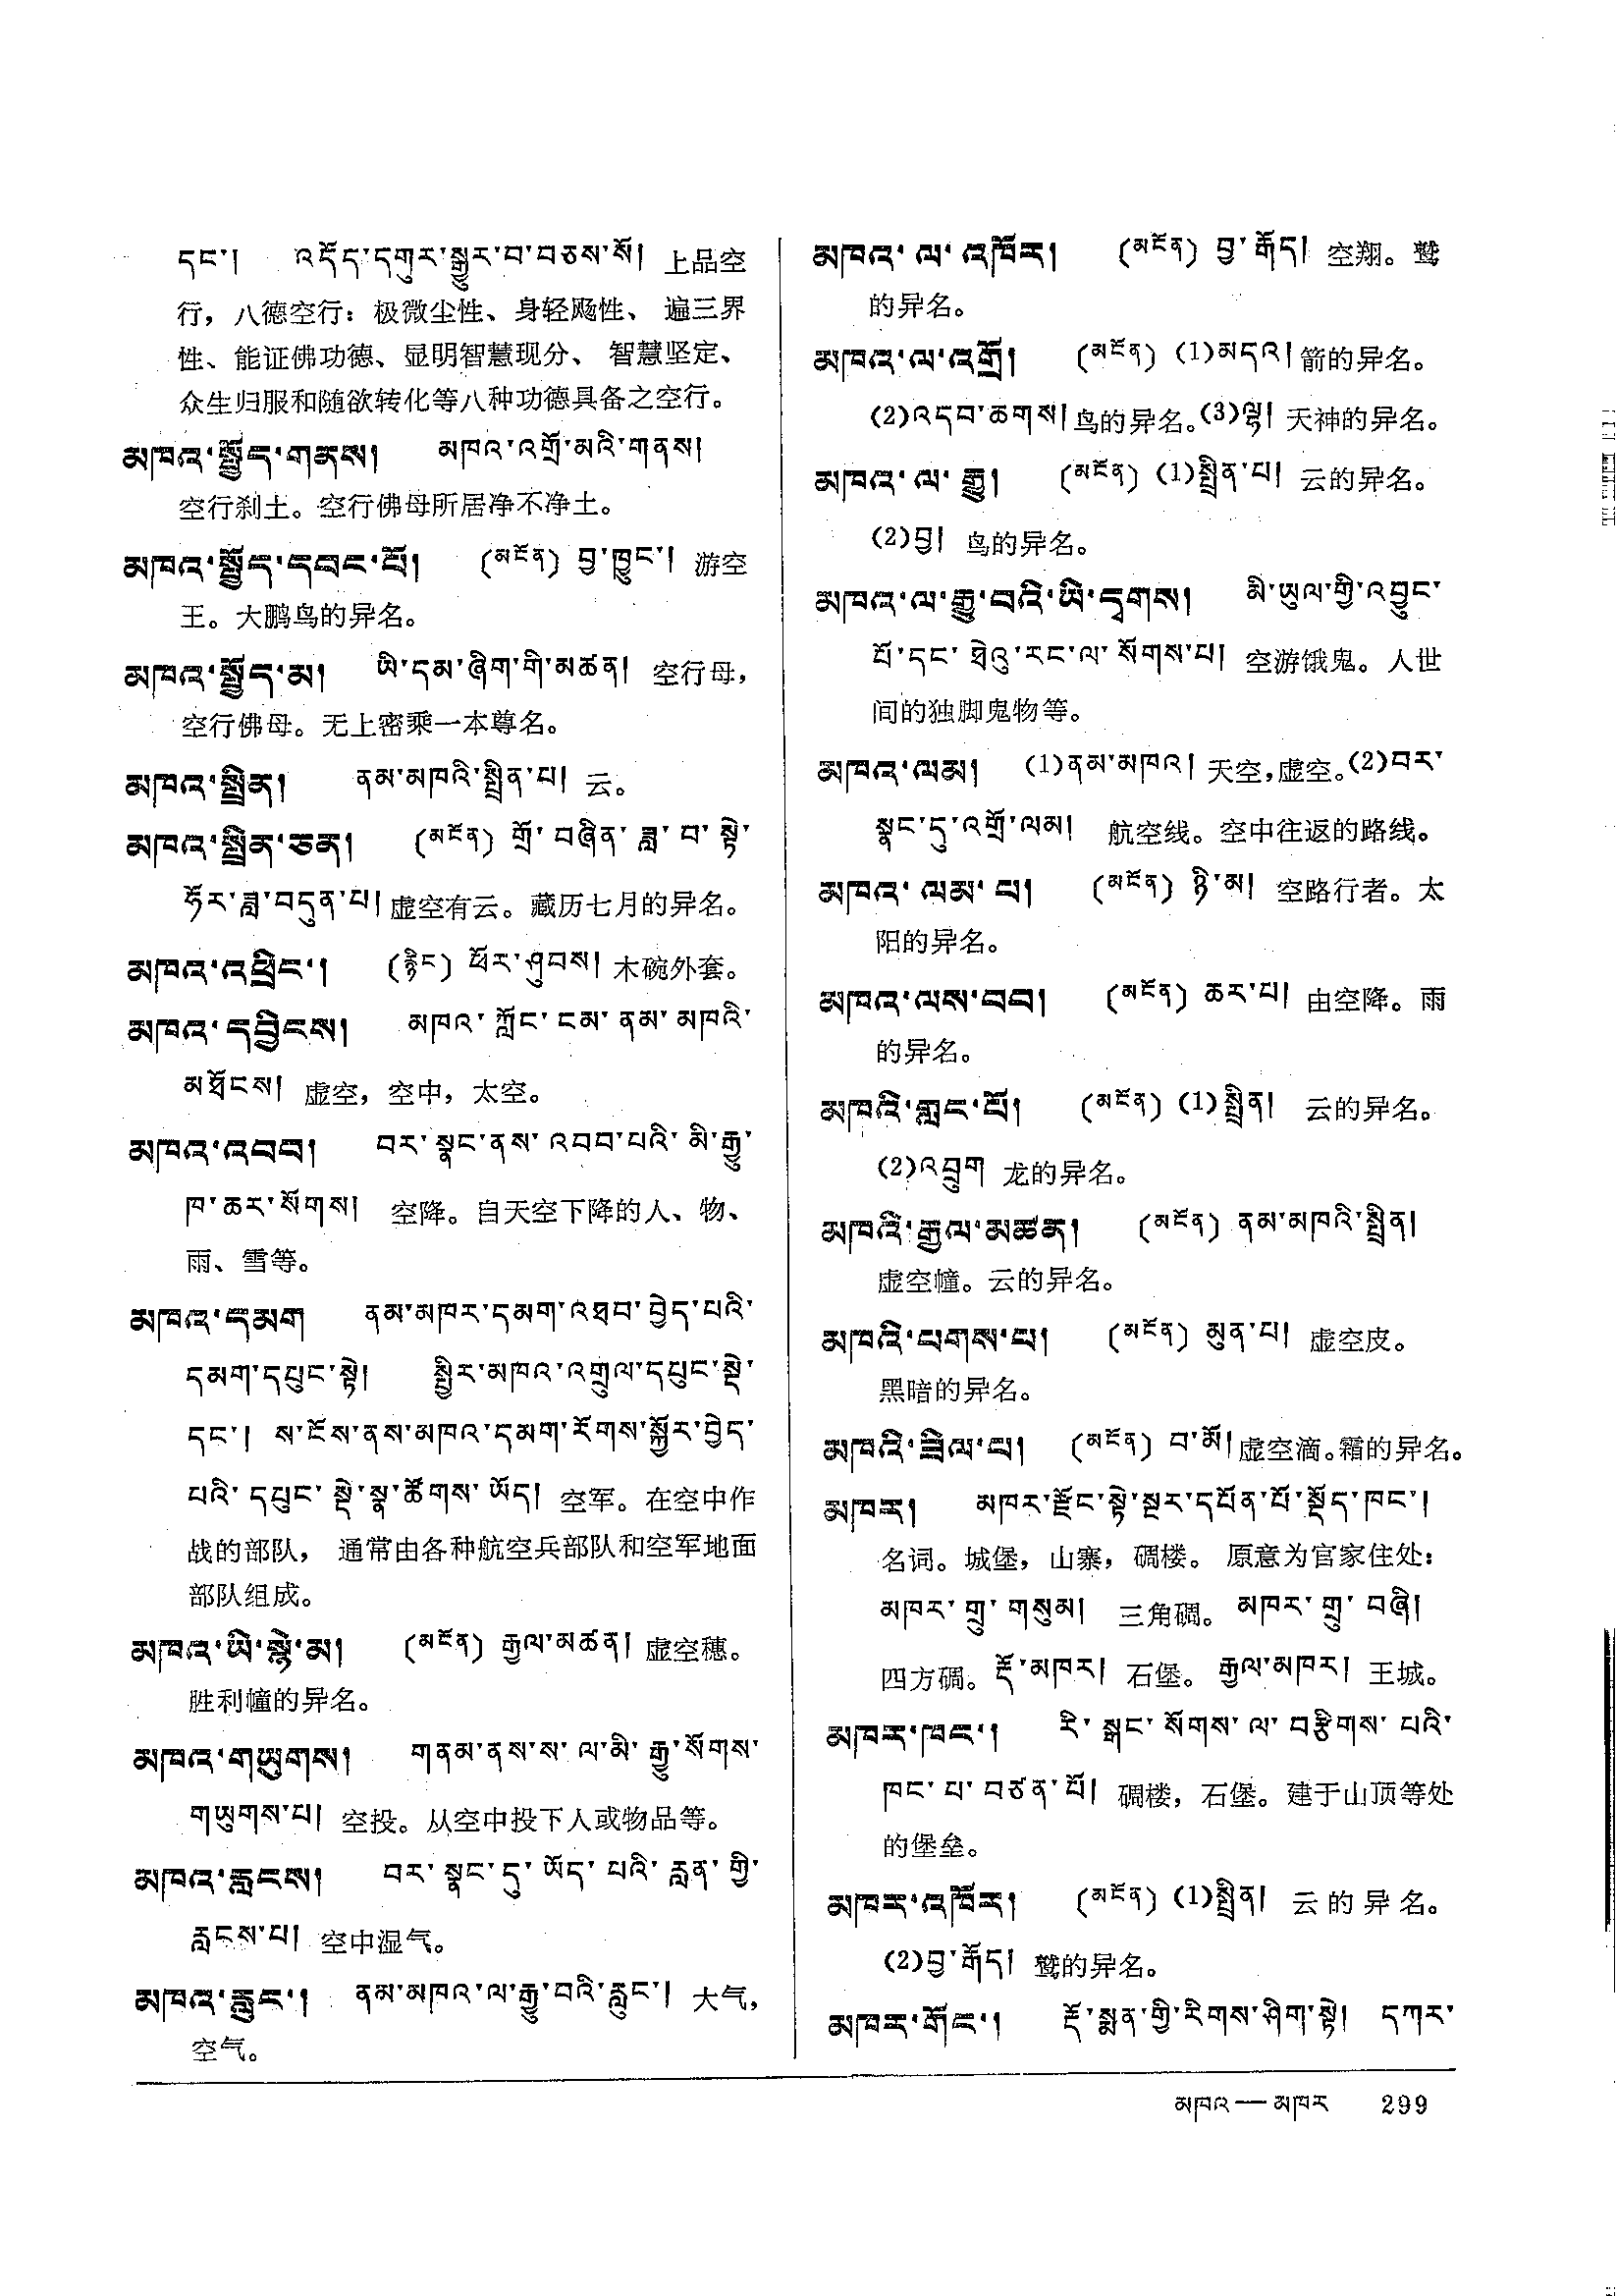 དང་། འདོད་དགུར་སྒྱུར་བ་བཅས་སོ། 上品空
行，八德空行：极微尘性、身轻飏性、遍三界
性、能证佛功德、显明智慧现分、智慧坚定、
众生归服和随欲转化等八种功德具备之空行。
མཁའ་སྤྱོད་གནས། མཁའ་འགྲོ་མའི་གནས།
空行刹土。空行佛母所居净不净土。
མཁའ་སྤྱོད་དབང་པོ། (མངོན) བྱ་ཁྱུང་། 游空
王。大鹏鸟的异名。
མཁའ་སྤྱོད་མ། ཡི་དམ་ཞིག་གི་མཚན། 空行母，
空行佛母。无上密乘一本尊名。
མཁའ་སྤྲིན། ནམ་མཁའི་སྤྲིན་པ། 云。
མཁའ་སྤྲིན་ཅན། (མངོན) གྲོ་བཞིན་ཟླ་བ་སྟེ་
ཧོར་ཟླ་བདུན་པ། 虚空有云。藏历七月的异名。
མཁའ་འཕྲིང་། (རྙིང) ཕོར་ཤུབས། 木碗外套。
མཁའ་དབྱིངས། མཁའ་ཀློང་ངམ་ནམ་མཁའི་
མཐོངས། 虚空，空中，太空。
མཁའ་འབབ། བར་སྣང་ནས་འབབ་པའི་མི་རྒྱུ་
ཁ་ཆར་སོགས། 空降。自天空下降的人、物、
雨、雪等。
མཁའ་དམག ནམ་མཁར་དམག་འཐབ་བྱེད་པའི་
དམག་དཔུང་སྟེ། སྤྱིར་མཁའ་འགྲུལ་དཔུང་སྡེ་
དང་། ས་ངོས་ནས་མཁའ་དམག་རོགས་སྐྱོར་བྱེད་
པའི་དཔུང་སྡེ་སྣ་ཚོགས་ཡོད། 空军。在空中作
战的部队，通常由各种航空兵部队和空军地面
部队组成。
མཁའ་ཡི་སྙེ་མ། (མངོན) རྒྱལ་མཚན། 虚空穗。
胜利幢的异名。
མཁའ་གཡུགས། གནམ་ནས་ས་ལ་མི་རྒྱུ་སོགས་
གཡུགས་པ། 空投。从空中投下人或物品等。
མཁའ་རླངས། བར་སྣང་དུ་ཡོད་པའི་རླན་གྱི་
རླངས་པ། 空中湿气。
མཁའ་རླུང་། ནམ་མཁའ་ལ་རྒྱུ་བའི་རླུང་། 大气，
空气。
མཁའ་ལ་འཁོར། (མངོན) བྱ་རྒོད། 空翔。鹫
的异名。
མཁའ་ལ་འགྲོ། (མངོན) (1)མདའ། 箭的异名。
(2)འདབ་ཆགས། 鸟的异名。(3)ལྷ། 天神的异名。
མཁའ་ལ་རྒྱུ། (མངོན) (1)སྤྲིན་པ། 云的异名。
(2)བྱ། 鸟的异名。
མཁའ་ལ་རྒྱུ་བའི་ཡི་དྭགས། མི་ཡུལ་གྱི་འབྱུང་
པོ་དང་ཐེའུ་རང་ལ་སོགས་པ། 空游饿鬼。人世
间的独脚鬼物等。
མཁའ་ལམ། (1)ནམ་མཁའ། 天空，虚空。(2)བར་
སྣང་དུ་འགྲོ་ལམ། 航空线。空中往返的路线。
མཁའ་ལམ་པ། (མངོན) ཉི་མ། 空路行者。太
阳的异名。
མཁའ་ལས་བབ། (མངོན) ཆར་པ། 由空降。雨
的异名。
མཁའི་གླང་པོ། (མངོན) (1)སྤྲིན། 云的异名。
(2)འབྲུག 龙的异名。
མཁའི་རྒྱལ་མཚན། (མངོན) ནམ་མཁའི་སྤྲིན།
虚空幢。云的异名。
མཁའི་པགས་པ། (མངོན) མུན་པ། 虚空皮。
黑暗的异名。
མཁའི་ཟིལ་པ། (མངོན) བ་མོ། 虚空滴。霜的异名。
མཁར། མཁར་རྫོང་སྟེ་སྔར་དཔོན་པོ་སྡོད་ཁང་།
名词。城堡，山寨，碉楼。原意为官家住处：
མཁར་གྲུ་གསུམ། 三角碉。མཁར་གྲུ་བཞི།
四方碉。རྡོ་མཁར། 石堡。རྒྱལ་མཁར། 王城。
མཁར་ཁང་། རི་སྒང་སོགས་ལ་བརྩིགས་པའི་
ཁང་པ་བཙན་པོ། 碉楼，石堡。建于山顶等处
的堡垒。
མཁར་འཁོར། (མངོན) (1)སྤྲིན། 云的异名。
(2)བྱ་རྒོད། 鹫的异名。
མཁར་གོང་། རྡོ་སྨན་གྱི་རིགས་ཤིག་སྟེ། དཀར་
མཁའ—མཁར 299